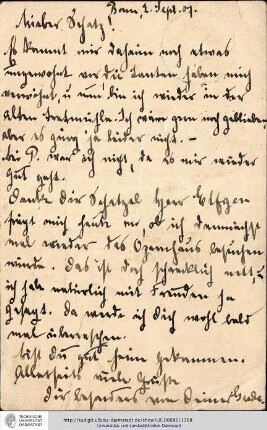 Bonn, 2. Sept. 07.
Lieber Schatz!
Es kommt mir daheim noch etwas
ungewohnt vor die Tanten haben mich
verwöhnt, u nun bin ich wieder in der
alten Tretmühle. Ich wäre gern noch geblieben
aber es ging ja leider nicht. –
bei P. war ich nicht, da es mir wieder
gut geht.
Denke Dir Schatzel Herr
frägt mich heute  ob ich demnächst
mal wieder das  besuchen
würde. Das ist doch schrecklich nett u
ich habe natürlich mit Freuden ja
gesagt. Da werde ich Dich wohl bald
mal überraschen.
Bist Du gut heim gekommen.
Allerseits viele Grüße
Dir besonders von Deiner
TECHNISCHE
UNIVERSITÄT
DARMSTADT
Universitäts- und Landesbibliothek Darmstadt